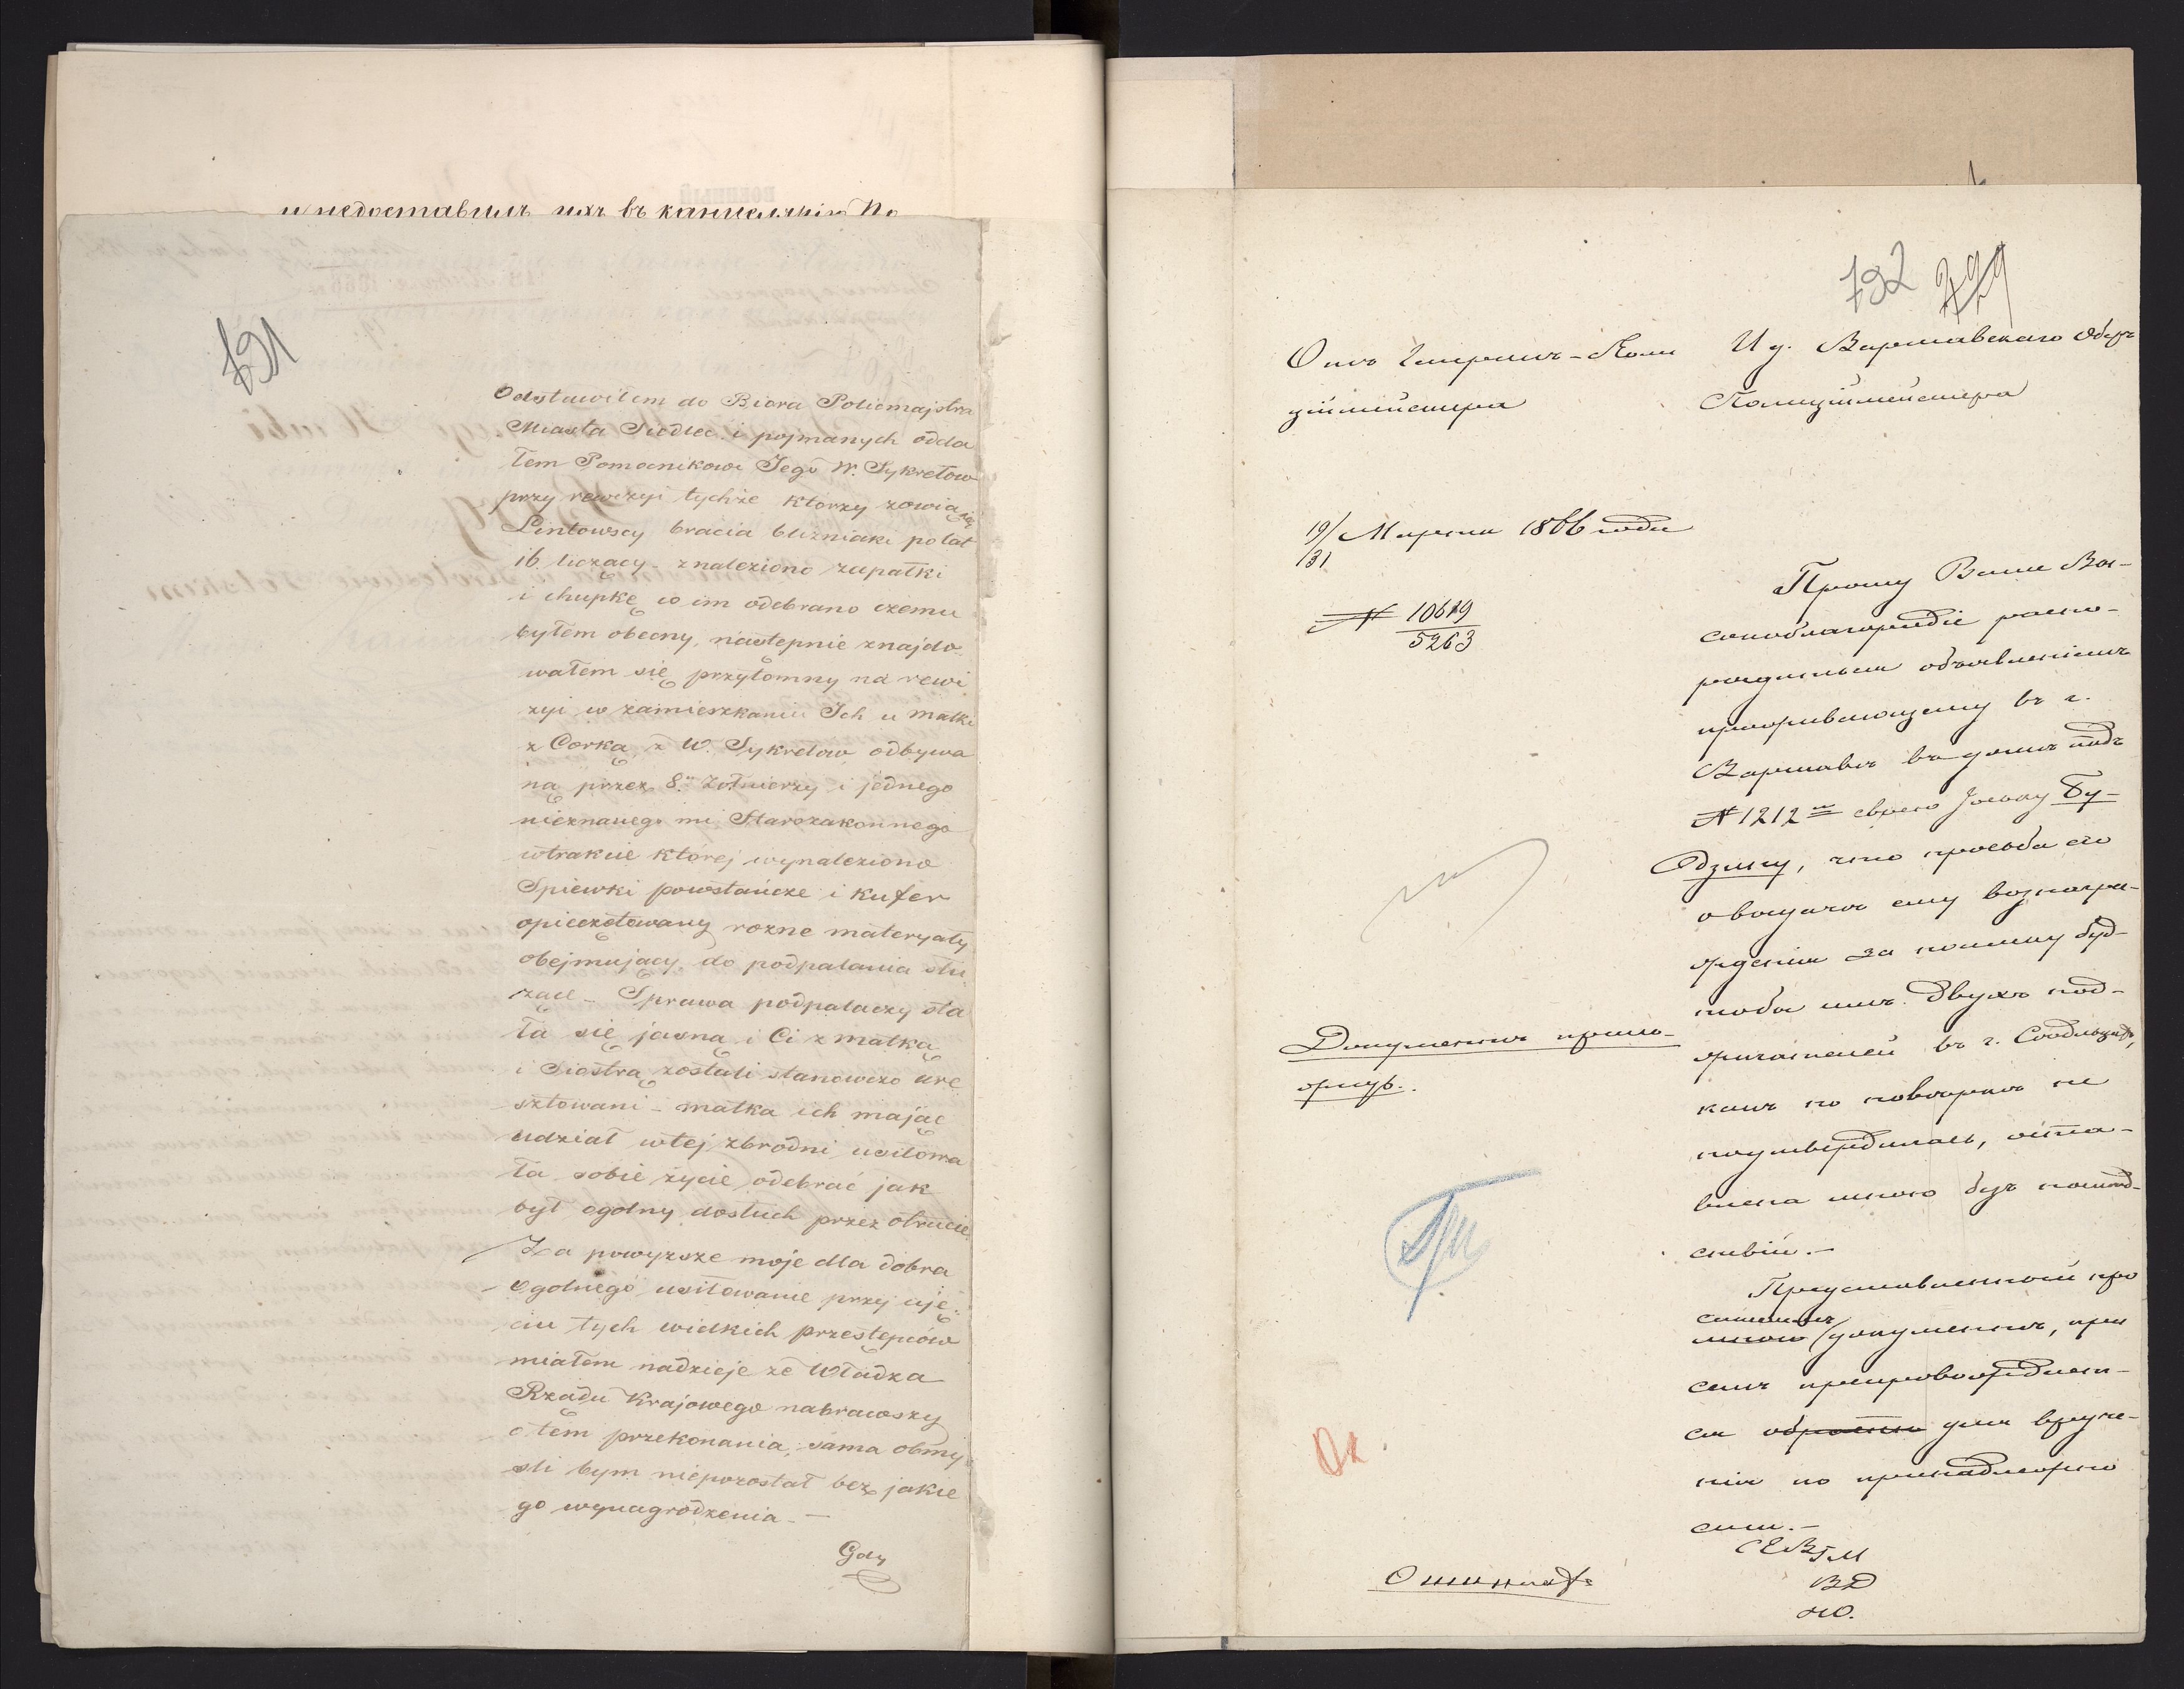 и недоставилъ ихъ въ канцелярію По
791
Odstawiłem do Biora Policmajstra
Miasta Siedlec i pojmanych odda
łem Pomocnikowi Jego W. Sykretow
przy rewizyi tychże którzy zowią się
Lentowscy bracia blizniaki po lat
16 liczący - znaleziono zapałki
i chupkę co im odebrano czemu
byłem obecny, następnie znajdo
wałem się przytomny na rewi
zyi w zamieszkaniu Ich u matki
z Corką, z W. Sykretow odbywa
ną przez 8. Zołnierzy i jednego
nieznanego mi Starozakonnego
wtrakcie której wynaleziono
Spiewki powstańcze i kufer
opieczętowany rozne materyały
obejmujący do podpalania słu
żące - Sprawa podpalaczy sta
ła się jasna i Ci z matką
i Siostrą zostali stanowczo are
sztowani - matka ich mając
udział wtej zbrodni usiłowa
ła sobie życie odebrać jak
był ogolny dosłuch przez otrucie.
Za powyzsze moje dla dobra
ogolnego usiłowanie przy uję
ciu tych wielkich przestępców
miałem nadzieje że Władza
Rządu Krajowego nabrawszy
o tem przekonania, sama obmy
sli bym niepozostał bez jakie
go wynagrodzenia. —
Gdy
792 799
Отъ Генералъ-Поли
ціймейстера
И д. Варшавскаго Оберъ
Полиціймейстера
19/31 Марта 1866 года
N 10619
5263
Прошу Ваше Вы-
сокоблагородіе распо-
рядиться объявленіемъ
проживающему въ г.
Варшавѣ въ домѣ подъ
N 1212 еврею Іоську Бу-
дзику, что просьба его
о выдачѣ ему вознагра-
жденія за поимку буд-
тобы имъ двухъ под-
жигателей въ г. Сѣдльцахъ,
какъ по повѣркѣ не
подтвердилась, оста-
влена мною безъ послѣд-
ствій. —
Документъ прило-
женъ.
Представленный про
сителемъ
мною документъ, при
семъ препровождает-
ся обратно для вруче-
нія по принадлежно
сти. —
ВД
Ю.